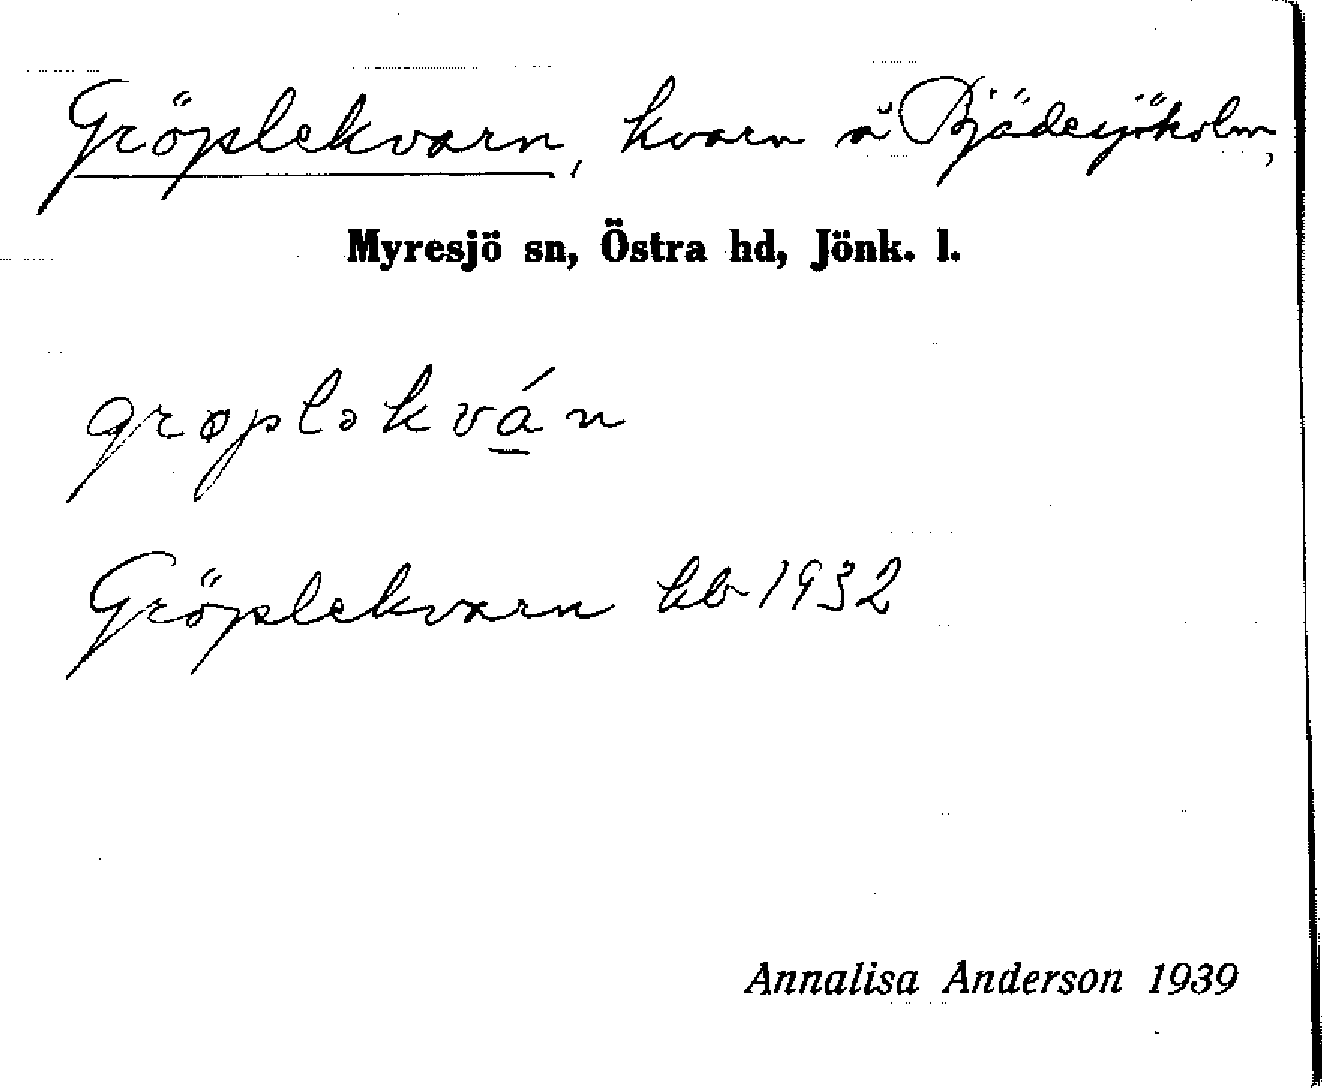 Gröplekvarn, kvarn å Bjädesjöholm,
Myresjö sn, Östra hd, Jönk. l.
grøpləkván
Gröplekvarn kb 1932
Annalisa Anderson 1939